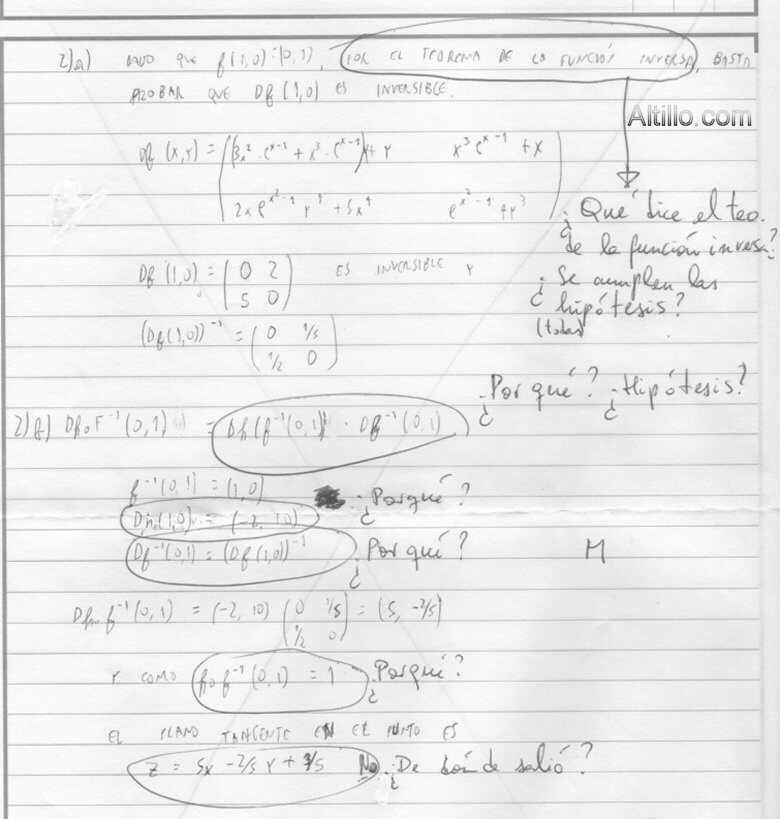 2)a) DADO QUE f(1,0)=(0,1), POR EL TEOREMA DE LA FUNCIÓN INVERSA, BASTA
PROBAR QUE Df(1,0) ES INVERSIBLE.
Altillo.com
Df(x,y) = ( (3x² · e^{x-1} + x³ · e^{x-1}) + y    x³ e^{x-1} + x
2x e^{x²-1} y⁴ + 5x⁴    e^{x²-1} 4y³ )
¿Qué dice el teo.
de la función inversa?
Df(1,0) = ( 0 2
5 0 ) ES INVERSIBLE Y
¿Se cumplen las
hipótesis?
(todas)
(Df(1,0))⁻¹ = ( 0 1/5
1/2 0 )
¿Por qué? ¿Hipótesis?
2)b) Dh∘F⁻¹(0,1) = Dh(f⁻¹(0,1)) · Df⁻¹(0,1)
f⁻¹(0,1) = (1,0)
¿Porqué?
Dh(1,0) = (-2, 10)
Df⁻¹(0,1) = (Df(1,0))⁻¹ ¿Por qué? M
Dh∘f⁻¹(0,1) = (-2, 10) ( 0 1/5
1/2 0 ) = (5, -2/5)
Y COMO h∘f⁻¹(0,1) = 1 ¿Porqué?
EL PLANO TANGENTE EN EL PUNTO ES
z = 5x - 2/5 y + 7/5 No ¿De dónde salió?